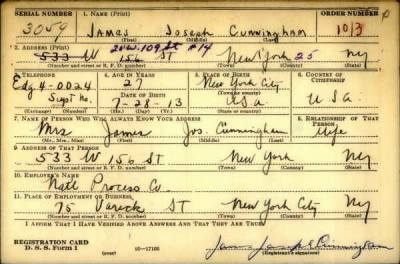 SERIAL NUMBER 1. NAME (Print) ORDER NUMBER
3059 James Joseph Cunningham 1013
(First) (Middle) (Last)
2. ADDRESS (Print) 21 W. 109 St #14
533 W 156 ST New York 25 NY
(Number and street or R. F. D. number) (Town) (County) (State)
3. TELEPHONE 4. AGE IN YEARS 5. PLACE OF BIRTH 6. COUNTRY OF CITIZENSHIP
Edg 4-0024 27 New York City
DATE OF BIRTH
Supt No. 7-28-13 USA USA
(Exchange) (Number) (Mo.) (Day) (Yr.) (State or country)
7. NAME OF PERSON WHO WILL ALWAYS KNOW YOUR ADDRESS 8. RELATIONSHIP OF THAT PERSON
Mrs James Jos. Cunningham Wife
(Mr., Mrs., Miss) (First) (Middle) (Last)
9. ADDRESS OF THAT PERSON
533 W 156 St New York NY
(Number and street or R. F. D. number) (Town) (County) (State)
10. EMPLOYER'S NAME
Natl Process Co.
11. PLACE OF EMPLOYMENT OR BUSINESS
75 Varick St New York City NY
(Number and street or R. F. D. number) (Town) (County) (State)
I AFFIRM THAT I HAVE VERIFIED ABOVE ANSWERS AND THAT THEY ARE TRUE.
REGISTRATION CARD
D. S. S. Form 1 (over) 16-17105 James Joseph Cunningham
(Registrant's signature)